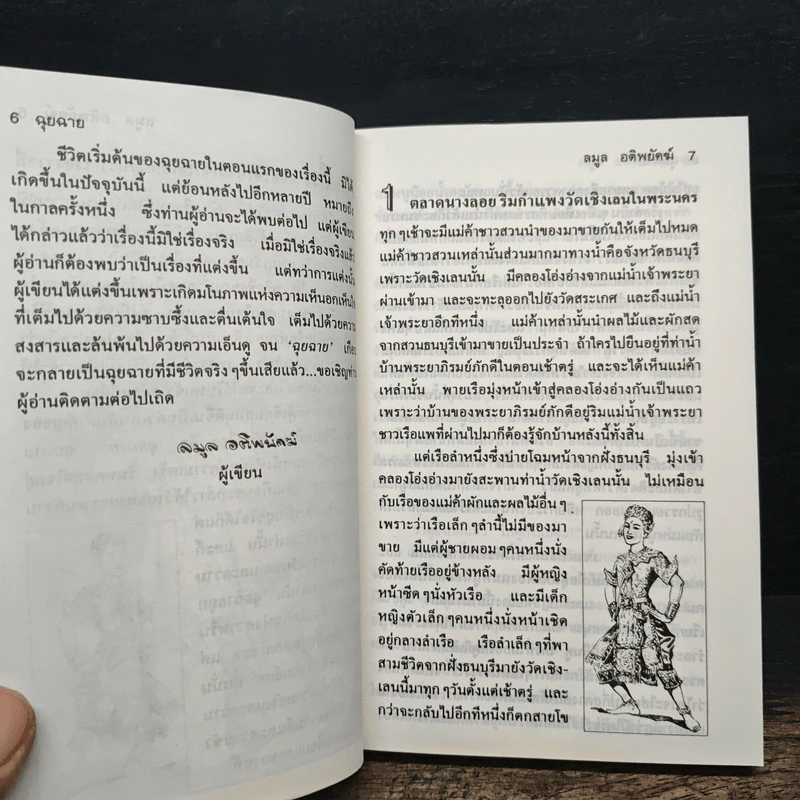 6 ฉุยฉาย
ชีวิตเริ่มต้นของฉุยฉายในตอนแรกของเรื่องนี้ มิได้
เกิดขึ้นในปัจจุบันนี้ แต่ย้อนหลังไปอีกหลายปี หมายถึง
ในกาลครั้งหนึ่ง ซึ่งท่านผู้อ่านจะได้พบต่อไป แต่ผู้เขียน
ได้กล่าวแล้วว่าเรื่องนี้มิใช่เรื่องจริง เมื่อมิใช่เรื่องจริงแล้ว
ผู้อ่านก็ต้องพบว่าเป็นเรื่องที่แต่งขึ้น แต่ทว่าการแต่งนั้น
ผู้เขียนได้แต่งขึ้นเพราะเกิดมโนภาพแห่งความเห็นอกเห็นใจ
ที่เต็มไปด้วยความซาบซึ้งและตื่นเต้นใจ เต็มไปด้วยความ
สงสารและล้นพ้นไปด้วยความเอ็นดู จน ‘ฉุยฉาย’ เกือบ
จะกลายเป็นฉุยฉายที่มีชีวิตจริงๆขึ้นเสียแล้ว...ขอเชิญท่าน
ผู้อ่านติดตามต่อไปเถิด
ลมูล อติพยัคฆ์
ผู้เขียน
ลมูล อติพยัคฆ์ 7
1 ตลาดนางลอย ริมกำแพงวัดเชิงเลนในพระนคร
ทุกๆเช้าจะมีแม่ค้าชาวสวนนำของมาขายกันให้เต็มไปหมด
แม่ค้าชาวสวนเหล่านั้นส่วนมากมาทางน้ำคือจังหวัดธนบุรี
เพราะวัดเชิงเลนนั้น มีคลองโอ่งอ่างจากแม่น้ำเจ้าพระยา
ผ่านเข้ามา และจะทะลุออกไปยังวัดสระเกศ และถึงแม่น้ำ
เจ้าพระยาอีกทีหนึ่ง แม่ค้าเหล่านั้นนำผลไม้และผักสด
จากสวนธนบุรีเข้ามาขายเป็นประจำ ถ้าใครไปยืนอยู่ที่ท่าน้ำ
บ้านพระยาภิรมย์ภักดีในตอนเช้าตรู่ และจะได้เห็นแม่ค้า
เหล่านั้น พายเรือมุ่งหน้าเข้าสู่คลองโอ่งอ่างกันเป็นแถว
เพราะว่าบ้านของพระยาภิรมย์ภักดีอยู่ริมแม่น้ำเจ้าพระยา
ชาวเรือแพที่ผ่านไปมาก็ต้องรู้จักบ้านหลังนี้ทั้งสิ้น
แต่เรือลำหนึ่งซึ่งบ่ายโฉมหน้าจากฝั่งธนบุรี มุ่งเข้า
คลองโอ่งอ่างมายังสะพานท่าน้ำวัดเชิงเลนนั้น ไม่เหมือน
กับเรือของแม่ค้าผักและผลไม้อื่นๆ
เพราะว่าเรือเล็กๆลำนี้ไม่มีของมา
ขาย มีแต่ผู้ชายผอมๆคนหนึ่งนั่ง
คัดท้ายเรืออยู่ข้างหลัง มีผู้หญิง
หน้าซีดๆนั่งหัวเรือ และมีเด็ก
หญิงตัวเล็กๆคนหนึ่งนั่งหน้าเชิด
อยู่กลางลำเรือ เรือลำเล็กๆที่พา
สามชีวิตจากฝั่งธนบุรีมายังวัดเชิง-
เลนนี้มาทุกๆวันตั้งแต่เช้าตรู่ และ
กว่าจะกลับไปอีกทีหนึ่งก็ตกสายโข